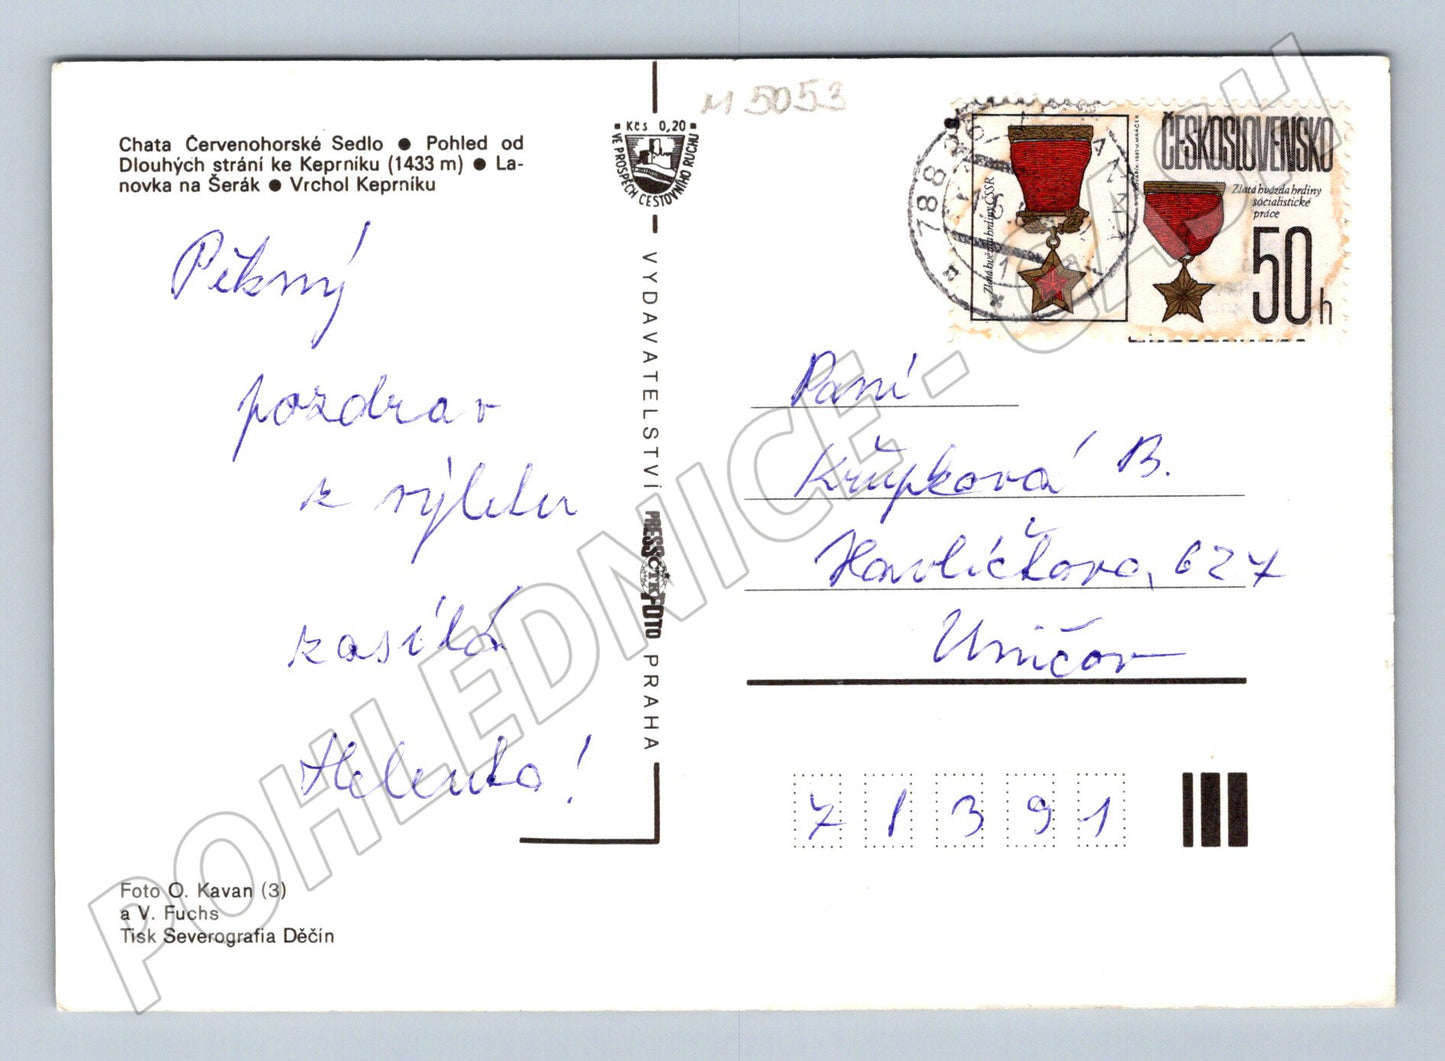 Chata Červenohorské Sedlo ● Pohled od
Dlouhých strání ke Keprníku (1433 m) ● La-
novka na Šerák ● Vrchol Keprníku
Pěkný
pozdrav
z výletu
zasílá
Helenka!
Foto O. Kavan (3)
a V. Fuchs
Tisk Severografia Děčín
Kčs 0,20
VE PROSPĚCH CESTOVNÍHO RUCHU
VYDAVATELSTVÍ PRESSFOTO PRAHA
ČTK
M 5053
788
ČESKOSLOVENSKO
Zlatá hvězda hrdiny
socialistické
práce
50h
Zlatá hvězda hrdiny ČSSR
Paní
Křupková B.
Havlíčkova, 627
Uničov
71391
POHLEDNICE - CASH